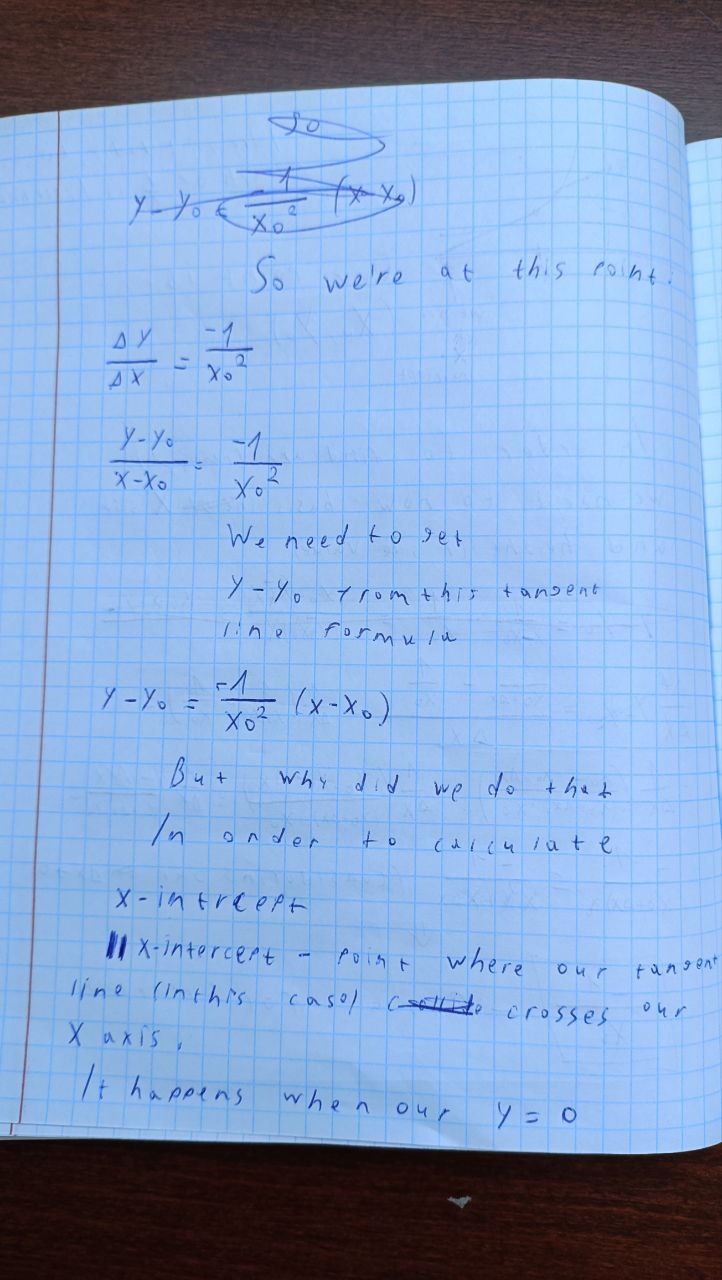 So
y - y₀ = -1/x₀² (x - x₀)
So we're at this point.
Δy/Δx = -1/x₀²
y-y₀/x-x₀ = -1/x₀²
We need to get
y - y₀ from this tangent
line formula
y - y₀ = -1/x₀² (x - x₀)
But why did we do that
In order to calculate
x-intrcept
x-intercept - point where our tangent
line (in this case) crosses our
X axis.
It happens when our y = 0